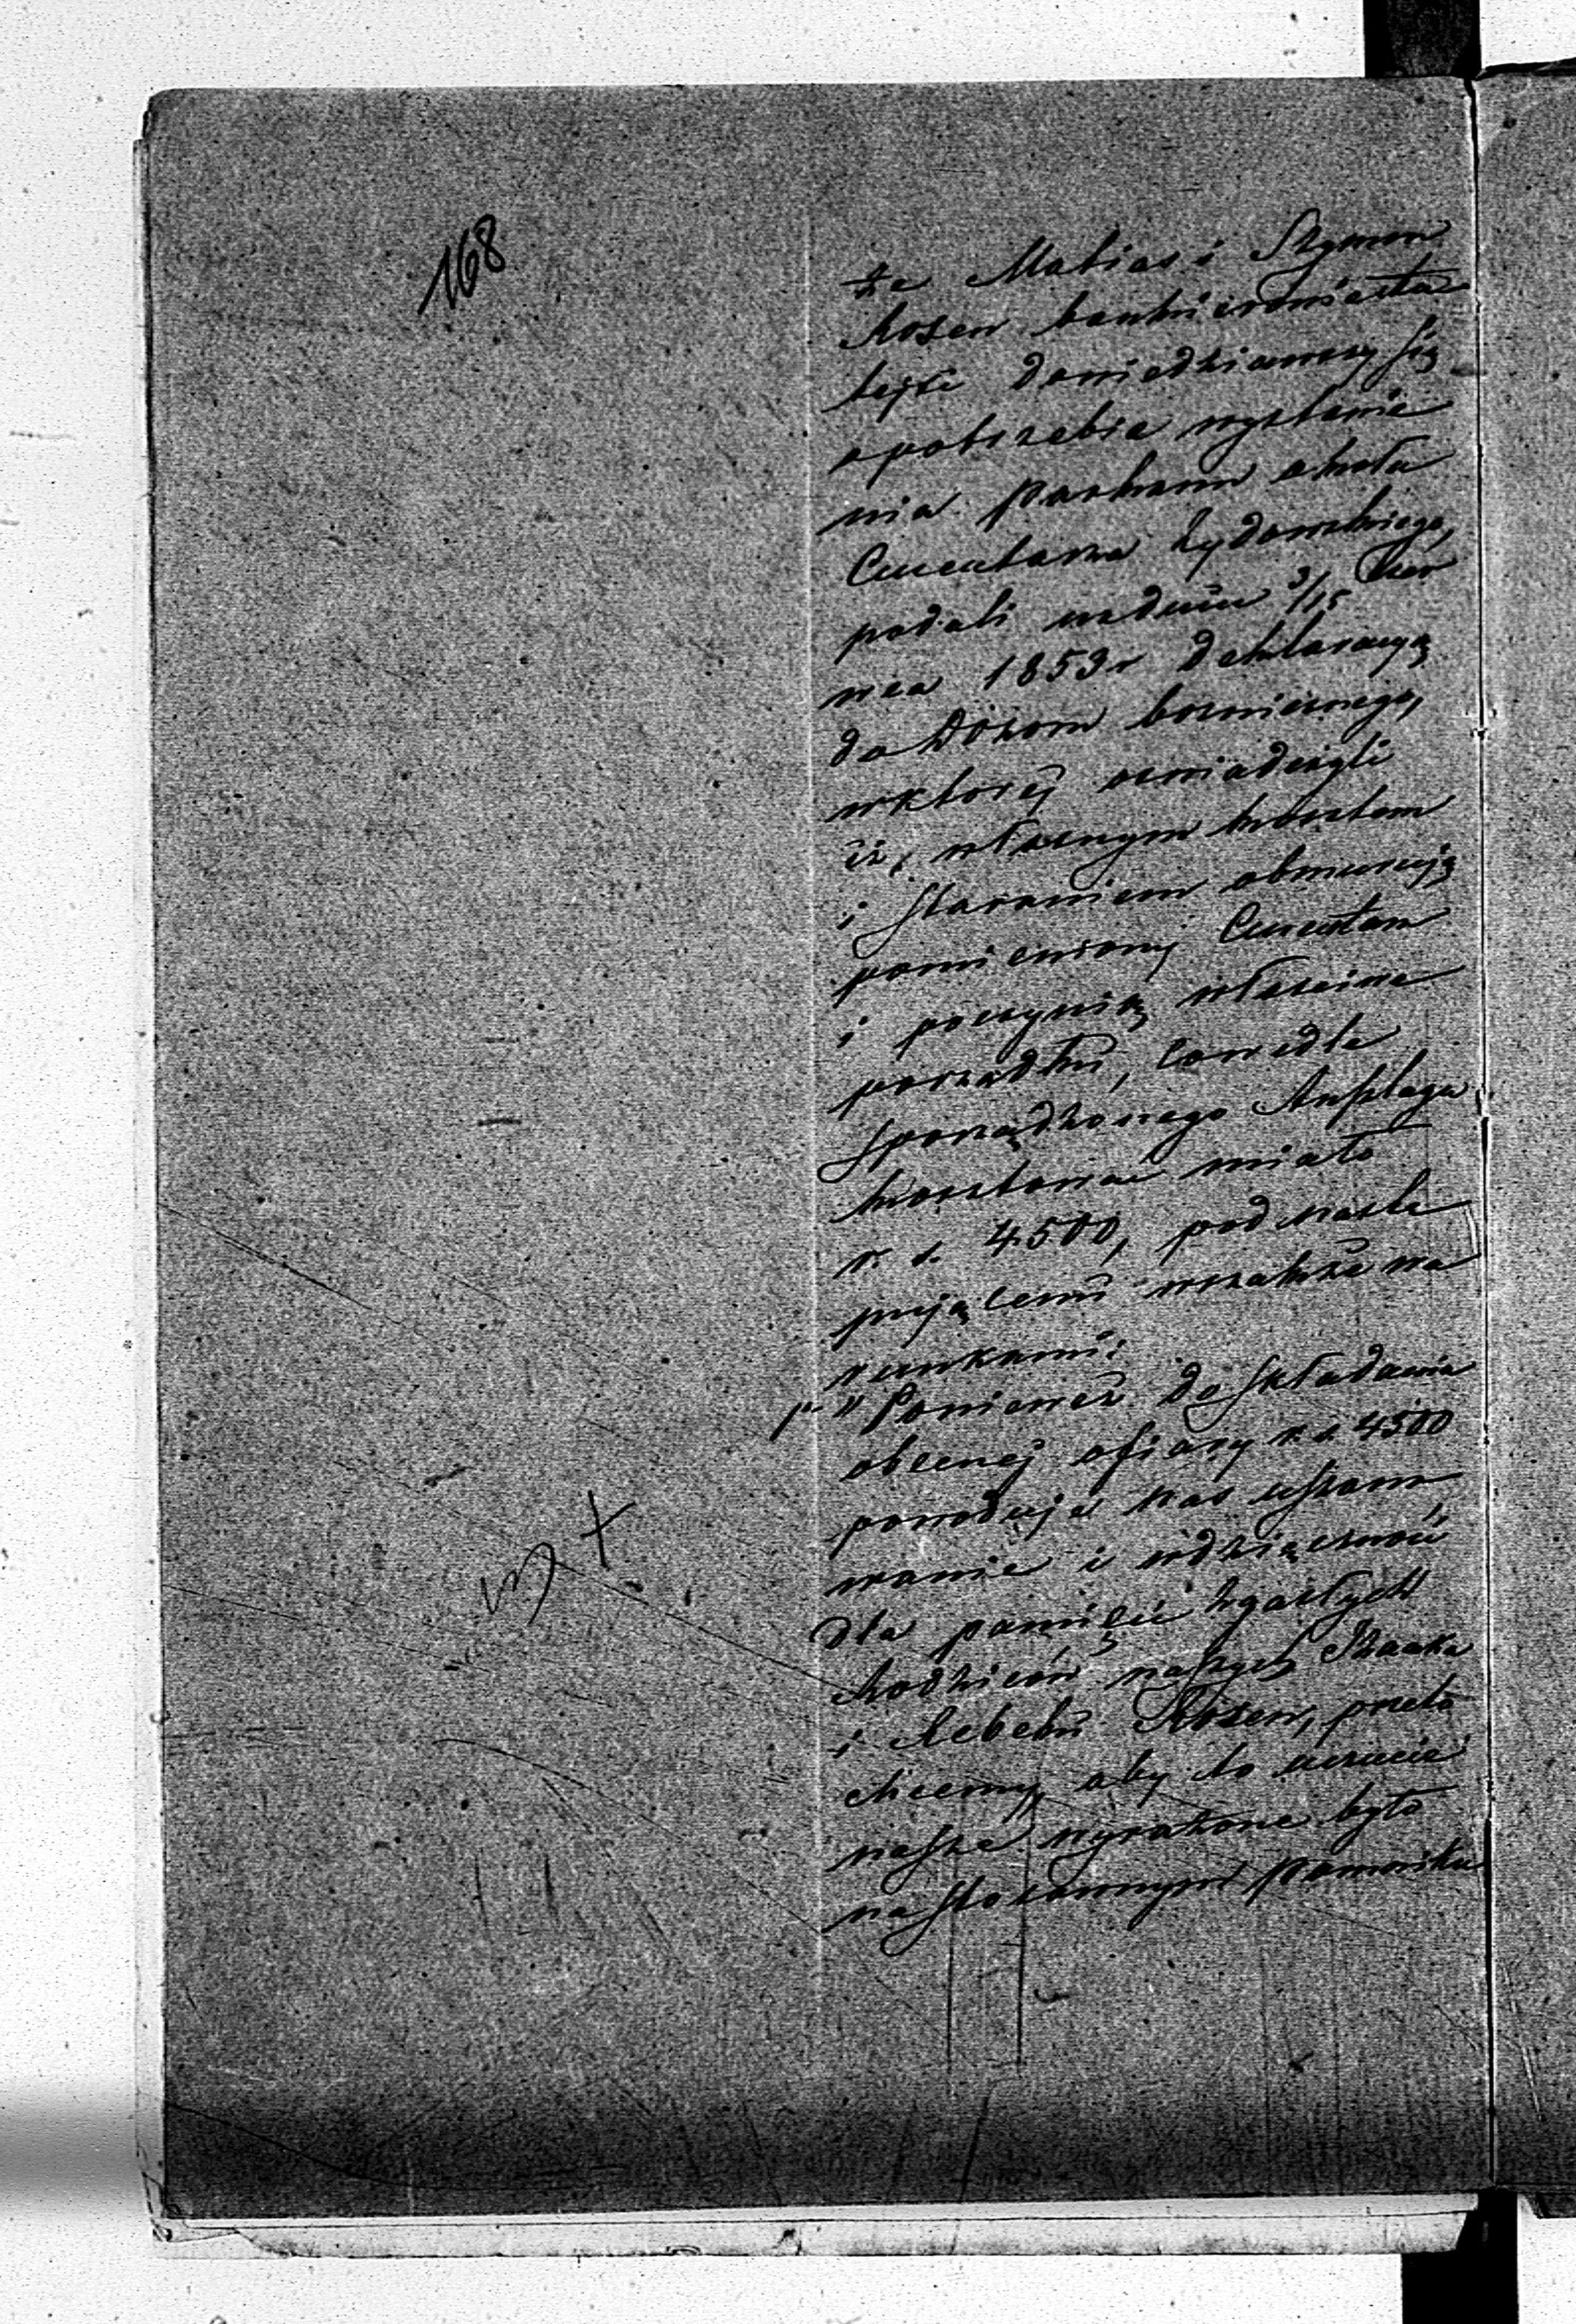 168
że Matias i Szymon
Rosen bankierowie ta
tejże dowiedziawszy się
o potrzebie wystawie
nia parkanu około
Cmentarza Żydowskiego,
podali w dniu 3/15 Czer
wca 1853 r deklaracyą
do Dozoru bożniczego,
w której oswiadczyli
iż, własnym kosztem
i staraniem obmurują
pomieniony Cmentarz
i poczynią właściwe
porządki, co wedle
sporządzonego Anszlagu
kosztować miało
r. s. 4500, pod nastę
pującemi wszakże wa
runkami:
1o „Ponieważ do składania
obecnej ofiary r. s. 4500
powoduje nas uszano
wanie i wdzięczność
dla pamięci zgasłych
Rodziców naszych Izaaka
i Rebeki Rosen, przeto
chcemy, aby to uczucie
nasze wyrażone było
na stosownym pomniku